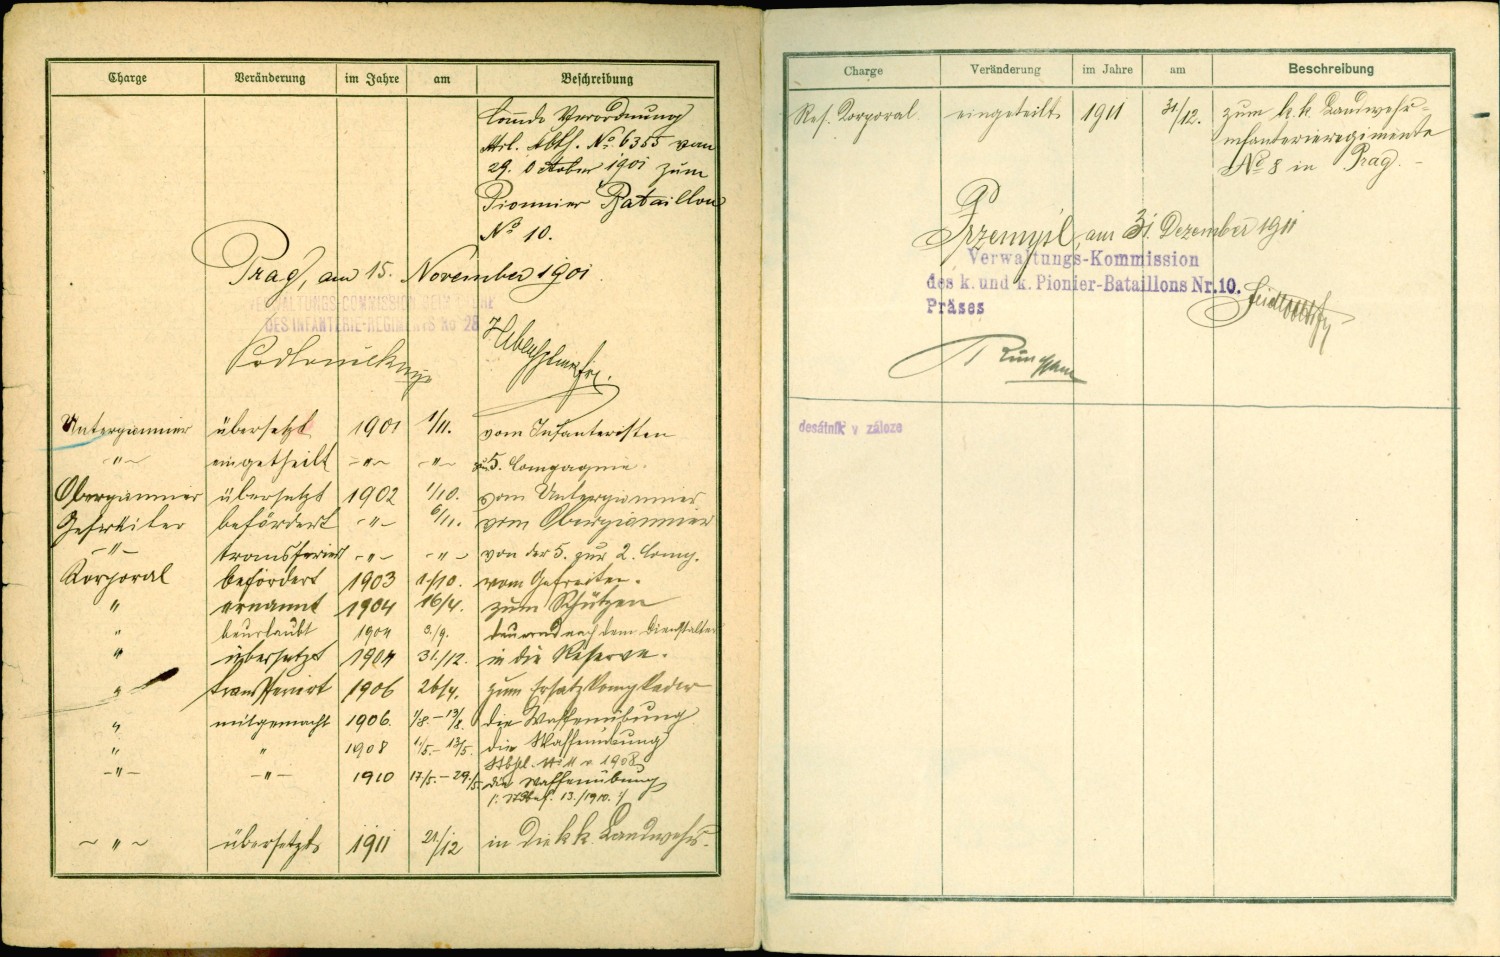 Charge Veränderung im Jahre am Beschreibung
Verordnung
Abth. No 6355 vom
29. October 1901 zum
Pionnier Bataillon
No 10.
Prag, am 15. November 1901.
VERWALTUNGS-COMMISSION
DES INFANTERIE-REGIMENTS No 28
Unterpionnier übersetzt 1901 1/11. vom Infanteristen
-"- eingetheilt -"- -"- zur 5. Compagnie.
Oberpionnier übersetzt 1902 1/10. vom Unterpionnier
Gefreiter befördert -"- 6/11. vom Oberpionnier
-"- transferiert -"- -"- von der 5. zur 2. Comp.
Korporal befördert 1903 1/10. vom Gefreiten.
" ernannt 1904 16/4. zum Schützen
" beurlaubt 1904 3./9. dauernd nach dem Dienstalter
" übersetzt 1904 31./12. in die Reserve.
" transferirt 1906 26/4. zum Ersatzkompkader
" mitgemacht 1906. 1/8.-13/8. die Waffenübung
" " 1908 1/5.-13/5. die Waffenübung
No 11 v 1908
-"- -"- 1910 17/5.-29./5. die Waffenübung
13./1910.
~"~ übersetzt 1911 21/12 in die k.k. Landwehr.
Charge Veränderung im Jahre am Beschreibung
Res. Korporal eingeteilt 1911 31/12. zum k.k. Landwehr-
infanterieregimente
No 8 in Prag. -
Przemysl, am 31. Dezember 1911
Verwaltungs-Kommission
des k. und k. Pionier-Bataillons Nr. 10.
Präses
desátník v záloze